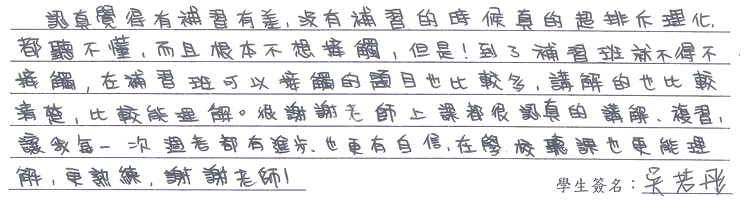 認真覺得有補習有差,沒有補習的時候真的超排斥理化,
都聽不懂,而且根本不想接觸,但是!到了補習班就不得不
接觸,在補習班可以接觸的題目也比較多,講解的也比較
清楚,比較能理解。很謝謝老師上課都很認真的講解、複習,
讓我每一次週考都有進步、也更有自信,在學校聽課也更能理
解,更熟練,謝謝老師!
學生簽名:吳若彤